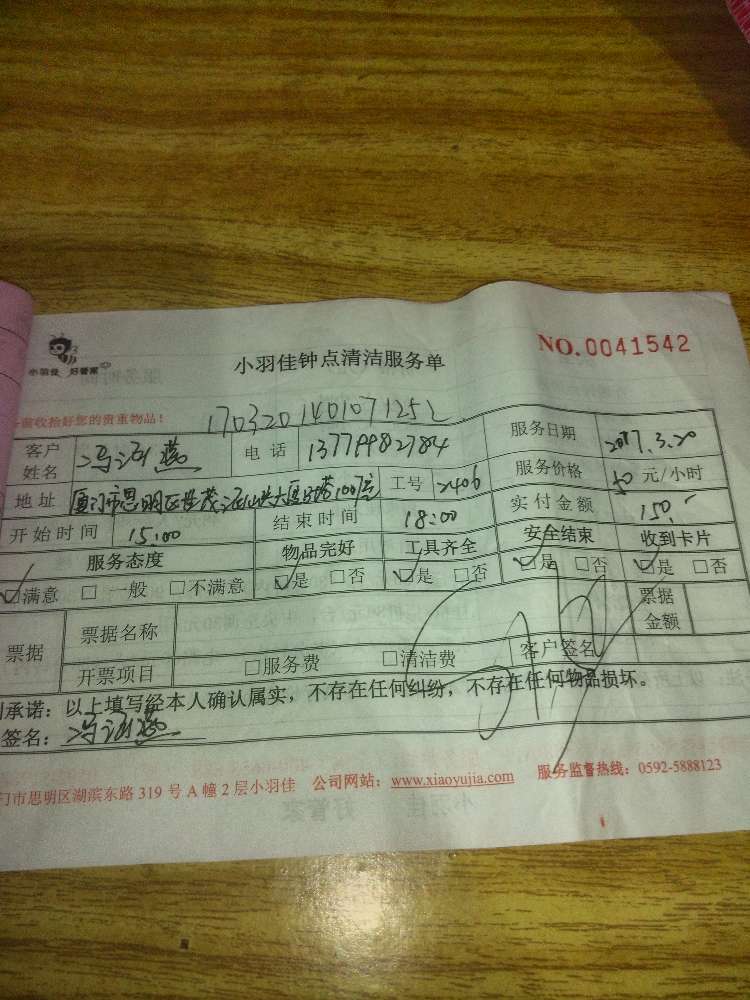 小羽佳 好管家
小羽佳钟点清洁服务单
NO.0041542
前收拾好您的贵重物品！
客户姓名 电话 13779982784 服务日期 2017.3.20
地址 厦门市思明区世茂 大厦 工号 2406 服务价格 50 元/小时
开始时间 15:00 结束时间 18:00 实付金额 150
服务态度 物品完好 工具齐全 安全结束 收到卡片
☑满意 □一般 □不满意 ☑是 □否 ☑是 □否 ☑是 □否 ☑是 □否
票据 票据名称 票据金额
开票项目 □服务费 □清洁费 客户签名
承诺：以上填写经本人确认属实，不存在任何纠纷，不存在任何物品损坏。
签名：
门市思明区湖滨东路 319 号 A 幢 2 层小羽佳 公司网站：www.xiaoyujia.com 服务监督热线：0592-5888123